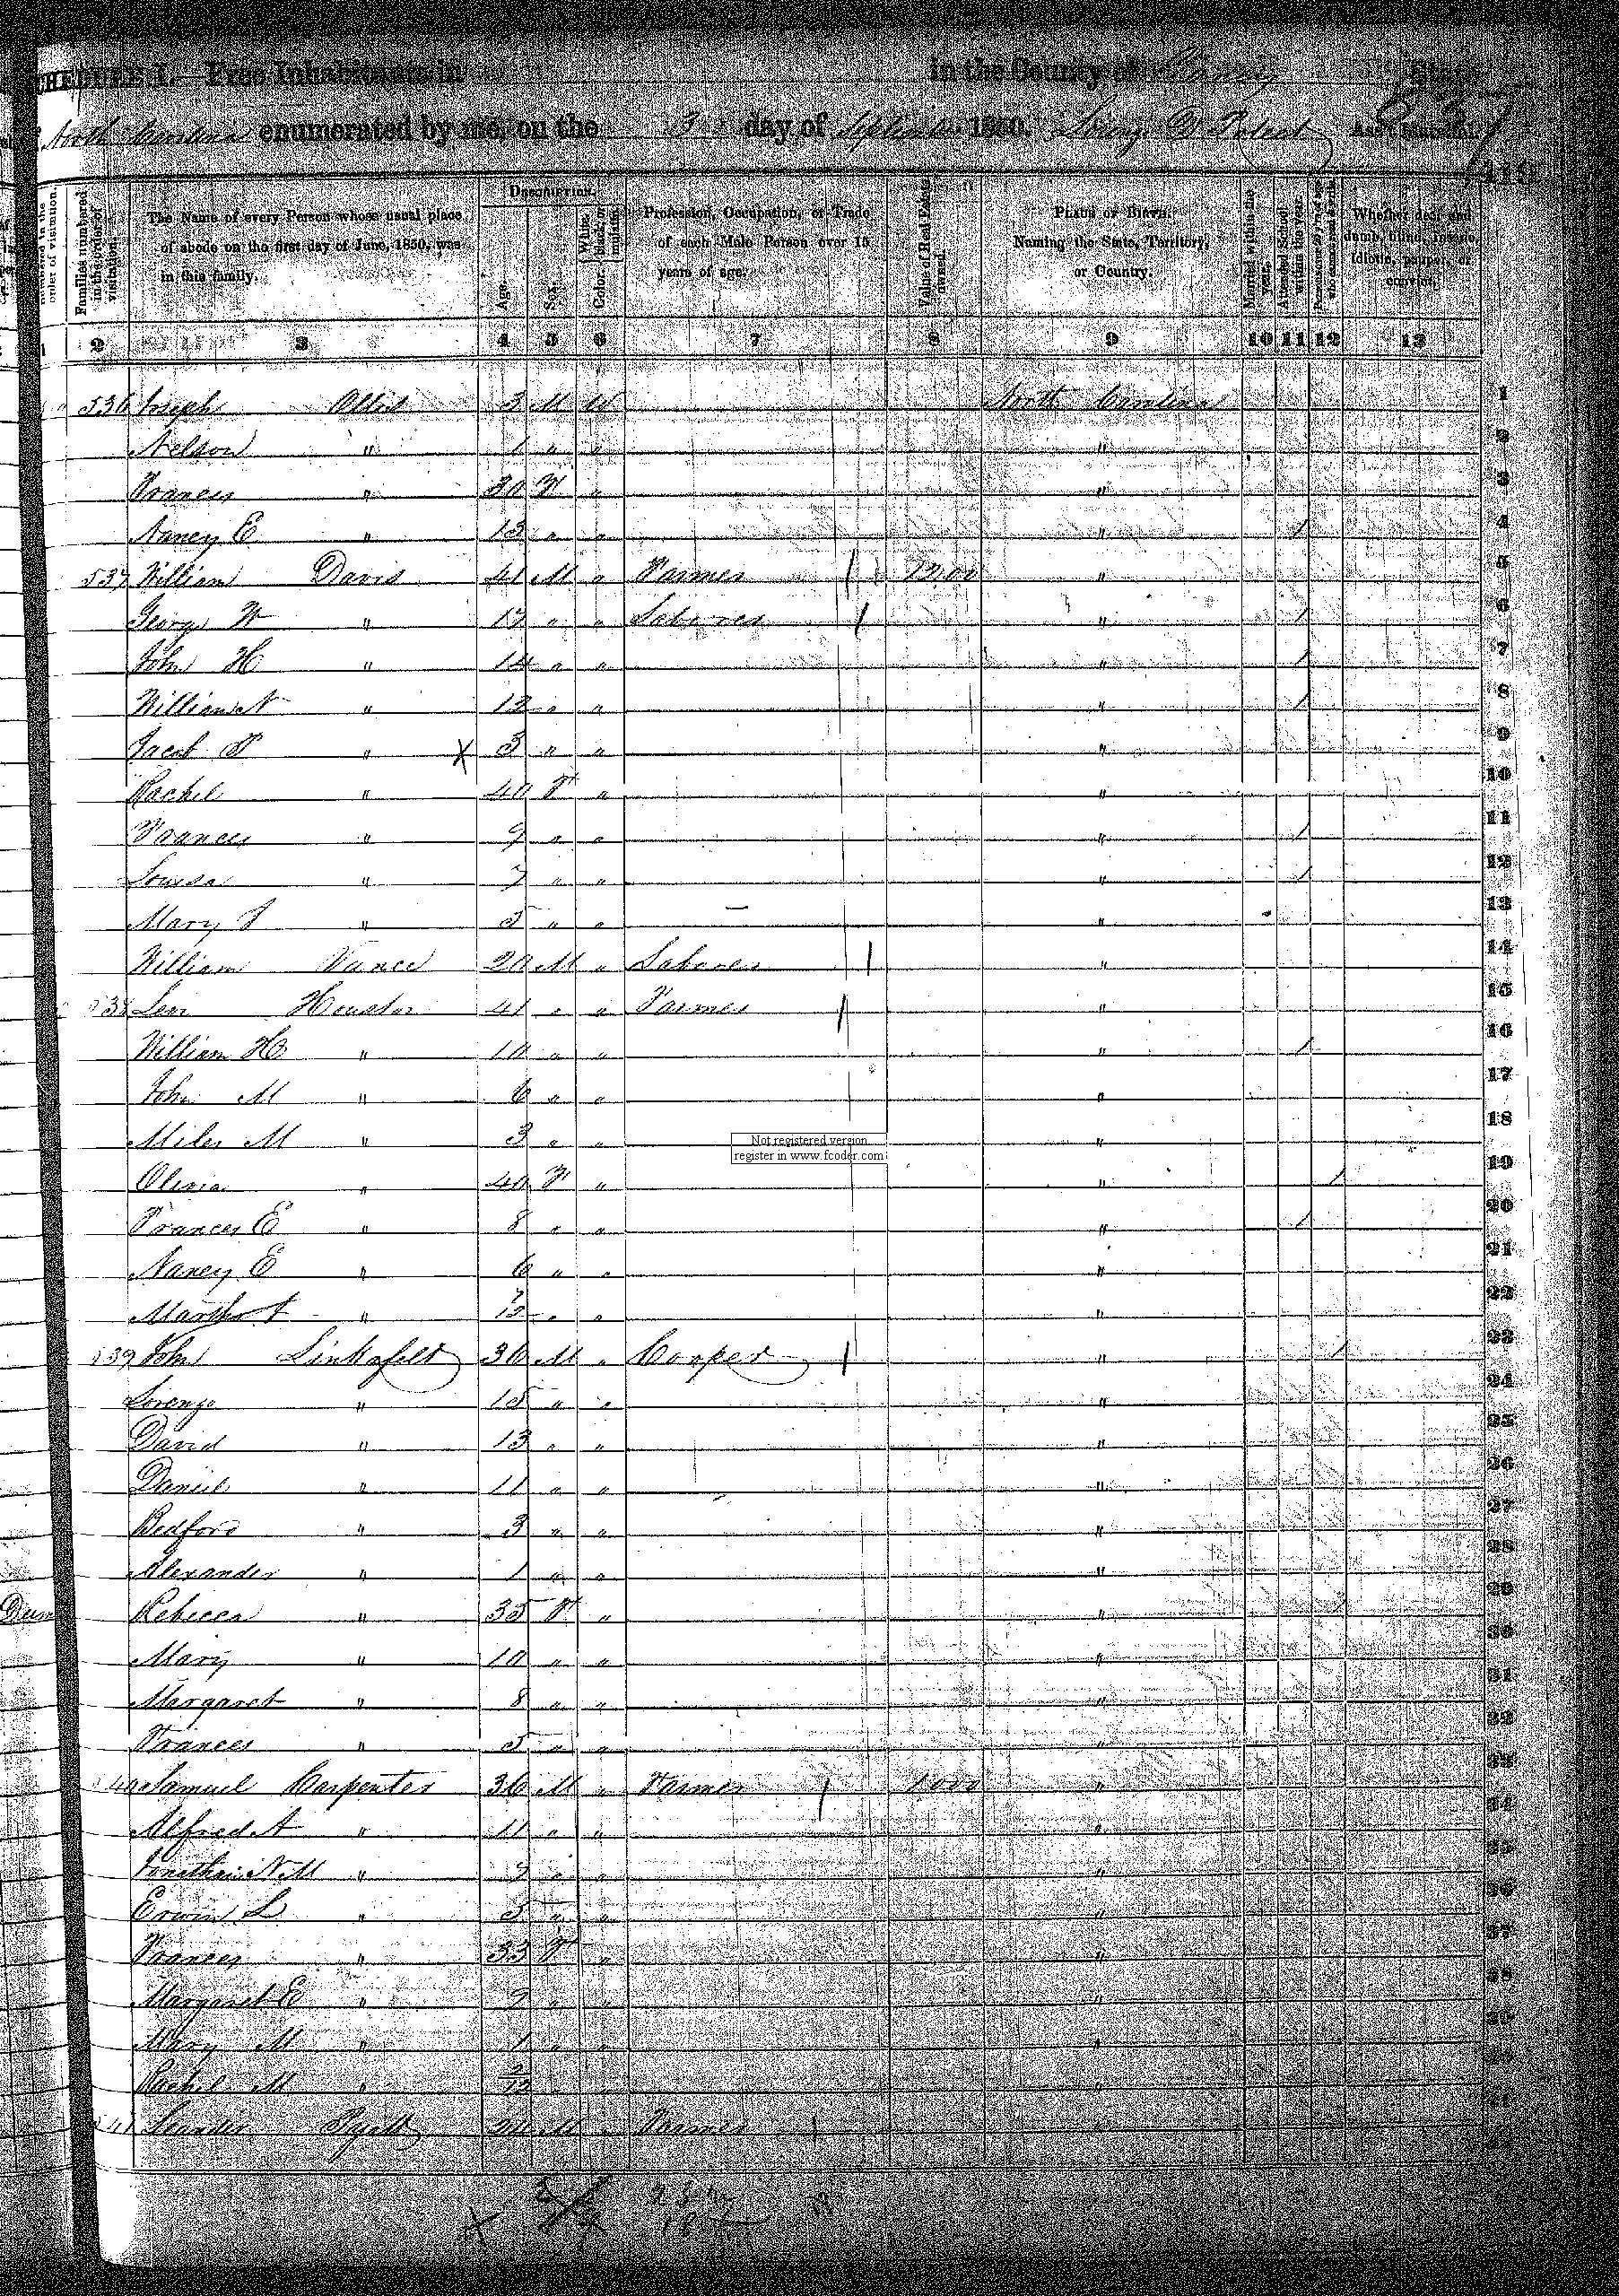 SCHEDULE I.—Free Inhabitants in in the County of Yancey State
of North Carolina enumerated by me, on the 3 day of September 1850. Ass't Marshal.
numbered in the order of visitation.
Families numbered in the order of visitation.
The Name of every Person whose usual place of abode on the first day of June, 1850, was in this family.
Description.
Age.
Sex.
Color. White, black, or mulatto.
Profession, Occupation, or Trade of each Male Person over 15 years of age.
Value of Real Estate owned.
Place of Birth. Naming the State, Territory, or Country.
Married within the year.
Attended School within the year.
Persons over 20 y'rs of age who cannot read & write.
Whether deaf and dumb, blind, insane, idiotic, pauper, or convict.
1 2 3 4 5 6 7 8 9 10 11 12 13
536 Joseph 3 M W North Carolina 1
Nelson " 1 " " " 2
Frances " 30 F " " 3
Nancy E " 13 " " " / 4
537 William Davis 41 M " Farmer 1200 " 5
George W " 17 " " Laborer " / 6
John H " 14 " " " / 7
William N " 12 " " " / 8
Jacob P " X 3 " " " 9
Rachel " 40 F " " 10
Frances " 9 " " " / 11
Louisa " 7 " " " / 12
Mary " 5 " " " 13
William Vance 20 M " Laborer " 14
538 Levi Houston 41 " " Farmer " 15
William H " 10 " " " / 16
John M " 6 " " " 17
Miles M " 3 " " " 18
Not registered version
register in www.fcoder.com
Olivia " 40 F " " / 19
Frances E " 8 " " " / 20
Nancy E " 6 " " " 21
Martha " 7/12 " " " 22
539 John Linkafelt 36 M " Cooper " / 23
Lorenzo " 15 " " " 24
David " 13 " " " 25
Daniel " 11 " " " 26
Bedford " 3 " " " 27
Alexander " 1 " " " 28
Rebecca " 35 F " " / 29
Mary " 10 " " " 30
Margaret " 8 " " " 31
Frances " 5 " " " 32
540 Samuel Carpenter 36 M " Farmer 1000 " 33
Alfred A " 11 " " " 34
Jonathan N M " 7 " " " 35
Erwin L " 5 " " " 36
Frances " 33 F " " 37
Margaret E " 9 " " " 38
Mary M " 1 " " " 39
Rachel M " 2/12 " 40
541 Pyatt 24 M " Farmer 41